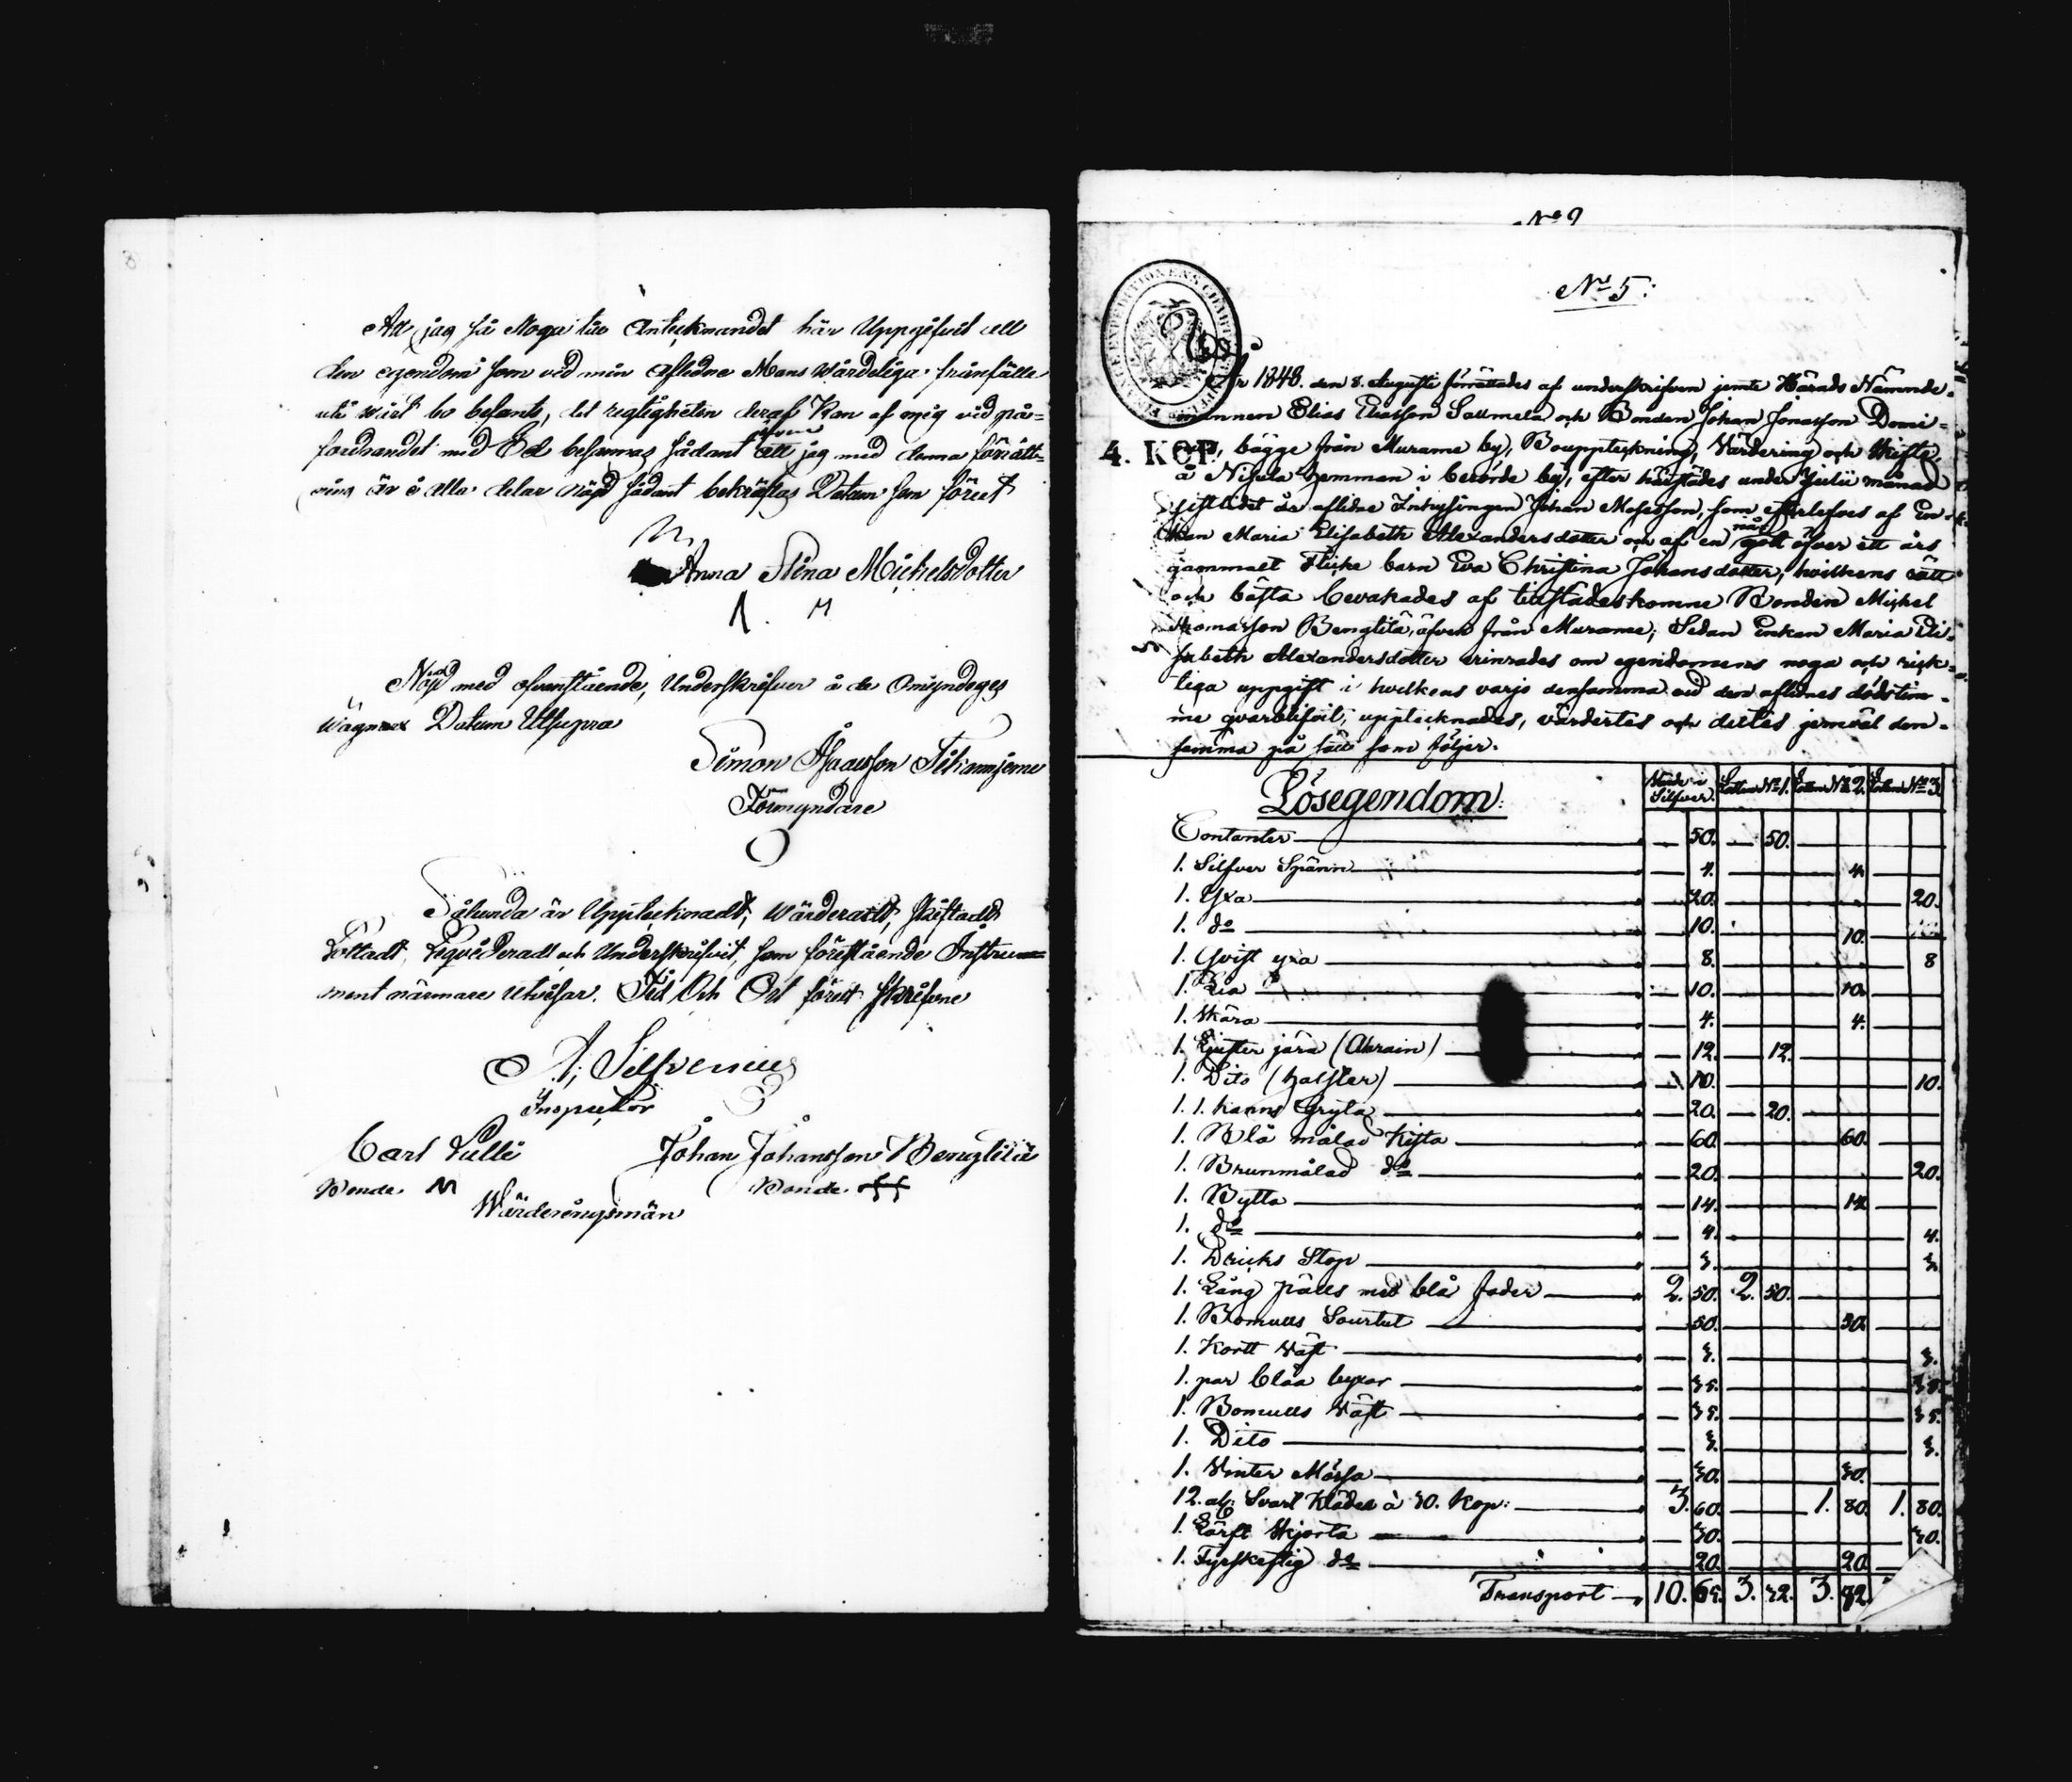 Att jag så Noga till Anteknandet här Uppgifvit all
den egendom som vid min Aflidne Mans Wårdeliga frånfälle
uti vårt bo befants, det rigtigheten deraf Kan af mig vid på-
fordrandet med Ed besannas sådant äfvens att jag med denna förrätt-
ning är i alla delar nöjd sådant bekräftas Datum som förut
Anna Stina Michelsdotter
Nöjd med ofvanstående, Underskrifver å de Omyndiges
Wägnar Datum Utsupra
Simon Isaacsson
Förmyndare
Sålunda är Uppteknadt, Wärderadt, Skiftadt
Lottadt, Liqvideradt och Underskrifvit, som förestående Instru-
ment närmare utvisar. Tid Och Ort förut skrifvne
A; Silfvenius
Inspector
Carl Pulli Johan Johansson Bengtilä
Bonde Bonde
Wärderingsmän
No 2
No 5:
År 1848. den 8. Augusti förrättades af underskrifven jemte Härads Nämnde-
mannen Elias Eliasson Salmela och Bonden Johan Jonasson Domi-
4. KOP. bägge från Murame by, Bouppteckning, Värdering och Skifte
å Nisula hemman i berörde by, efter härstädes under Julii månad
sistledet år aflidne Inhysingen Johan Mosesson, som efterlefves af En-
kan Maria Elisabeth Alexandersdotter och af en något öfver ett års
gammalt Flicke barn Eva Christina Johansdotter, hvilkens rätt
och bästa bevakades af tillstädeskomne Bonden Michel
Thomasson Bengtilä, äfven från Murame; Sedan Enkan Maria Eli-
sabeth Alexandersdotter erinrades om egendomens noga och rigk-
tiga uppgift i hvilkens varjo densamma vid den aflidnes dödstim-
me qvarblifvit, upptecknades, värdertes och deltes jemväl den-
samma på sätt som följer.
Lösegendom: Värde i Silfver. Lotten No 1. Lotten No 2. Lotten No 3.
Contanter 50. 50.
1. Silfver Spänn 4. 4.
1. Yxa 20. 20.
1. do 10. 10.
1. Qvist yxa 8. 8
1. Lia 10. 10.
1. Skära 4. 4.
1. Ljuster järn (Ahrain) 12. 12.
1. Dito (halster) 10. 10.
1. 1. kanns Gryta 20. 20.
1. Blå målad Kista 60. 60.
1. Brunmålad do 20. 20.
1. Bytta 14. 14.
1. do 4. 4.
1. Dricks Stop
1. Lång päls med blå foder 2. 50. 2. 50.
1. Bomulls Sourtut 30. 30.
1. Kort väst
1. par blåa byxor
1. Bomulls Väst
1. Dito
1. Vinter Mössa 30. 30.
12. al: Svart Kläde à 30. Kop: 3. 60. 1. 80. 1. 80.
1. Lärft Skjorta 30. 30.
1. Fyrskaftig do 20. 20.
Transport 10. 3. 32. 3.